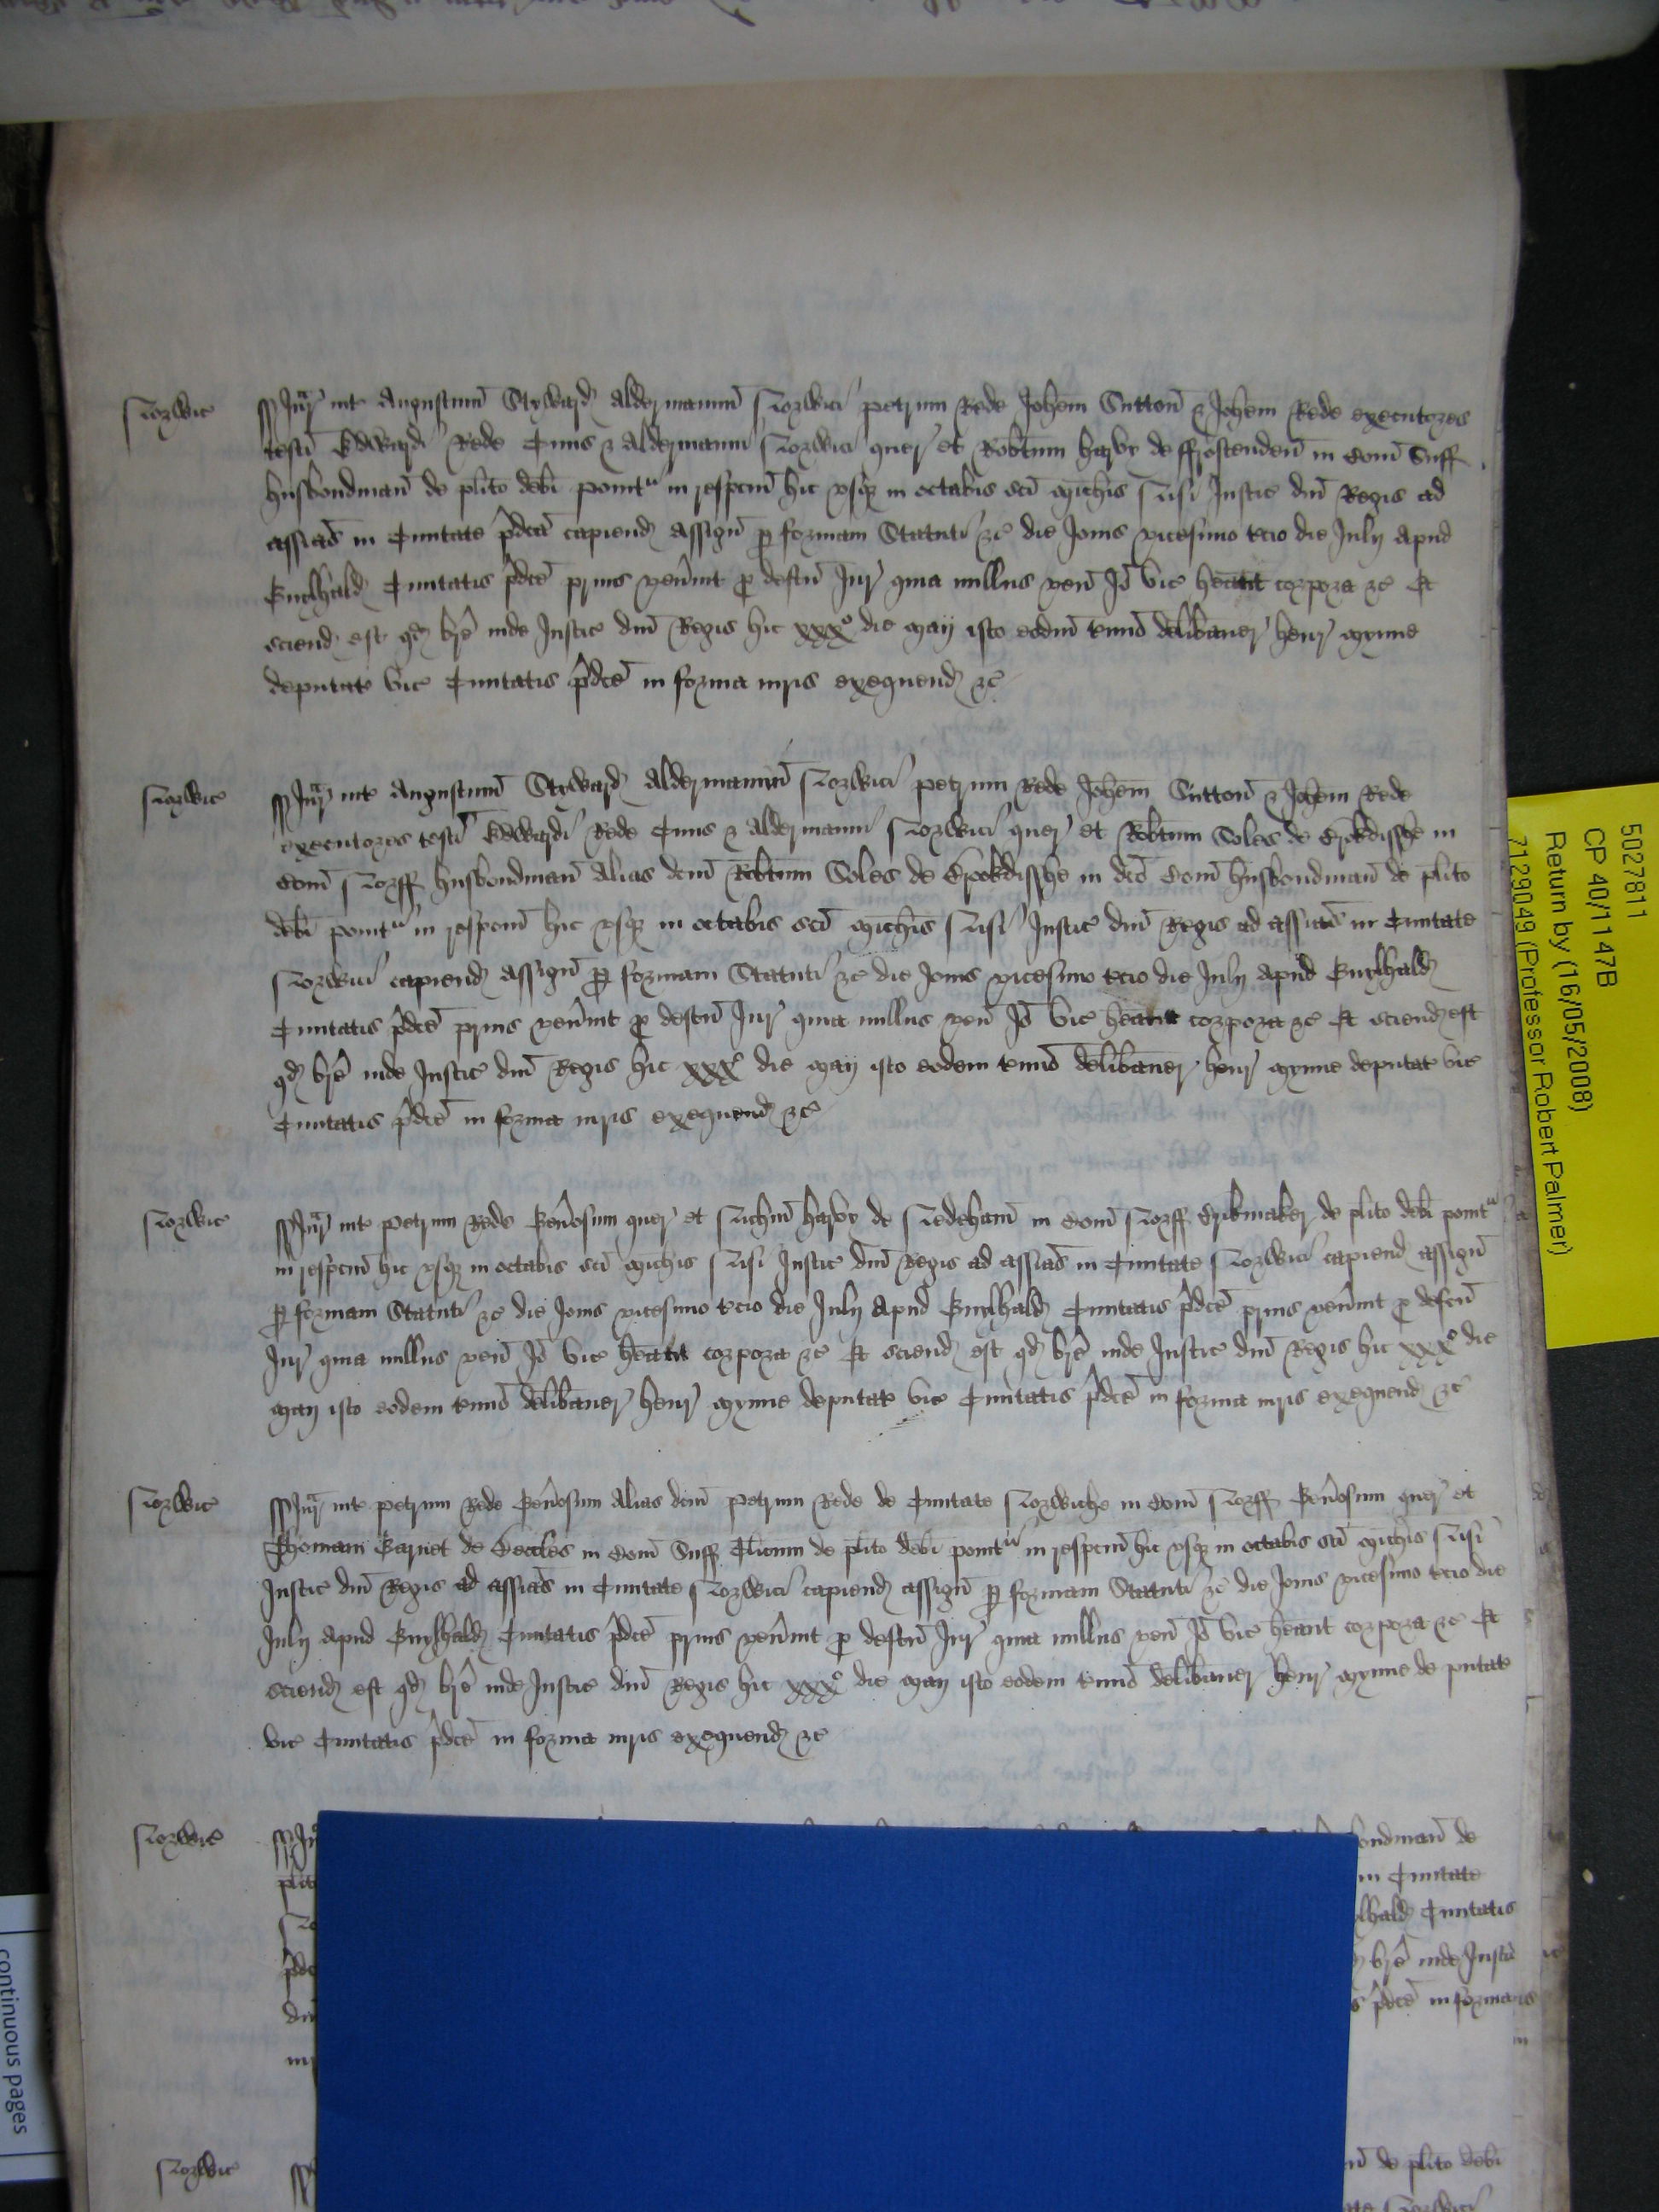 Norwic̄ Jur̄ int̄ Augustinū Styward Aldermannū Norwici Petrum Rede Joħem Suttoñ & Joħem Rede executores
testī Edwardi Rede Civis & Aldermanni Norwici quer̄ et Rob̄tum de ffrostendeñ in Com̄ Suff
husbondmañ de pl̄ito deb̄i ponit̄ᵘ in respcm̄ hic usq̢ in octabis sc̄i Mich̄is Nisi Justic̄ dn̄i Regis ad
assias̄ in Civitate p̄dc̄a capiend assign̄ p̱ formam Statuti &c̄ die Jovis vicesimo t̄cio die Julij apud
Guyhald Civitatis p̄dc̄e prius ven̄int p̱ defc̄u Jur̄ quia nullus ven̄ Jō vic̄ heant corpora &c̄ Et
sciend est qd br̄e inde Justic̄ dn̄i Regis hic xxxº die Maij isto eodm̄ t̄mīo delib̄aver̄ Henr̄ Mynne
deputat̄ vic̄ Civitatis p̄dc̄e in forma iuris exequend &c̄
Norwic̄ Jur̄ int̄ Augustinū Styward Aldermannū Norwici Petrum Rede Joħem Suttoñ & Joħem Rede
executores testī Edwardi Rede Civis & Aldermanni Norwici quer̄ et Rob̄tum Soles de in
Com̄ Norff husbondmañ alias dc̄m Rob̄tum Soles de in dc̄o Com̄ husbondmañ de pl̄ito
deb̄i ponit̄ᵘ in respcm̄ hic usq̢ in octabis sc̄i Mich̄is Nisi Justic̄ dn̄i Regis ad assias̄ in Civitate
Norwici capiend assign̄ p̱ formam Statuti &c̄ die Jovis vicesimo t̄cio die Julij apud Guyhald
Civitatis p̄dc̄e prius ven̄int p̱ defc̄u Jur̄ quia nullus ven̄ Jō vic̄ heant corpora &c̄ Et sciend est
qd br̄e inde Justic̄ dn̄i Regis hic xxxº die Maij isto eodem t̄mīo delib̄aver̄ Henr̄ Mynne deputat̄ vic̄
Civitatis p̄dc̄e in forma iuris exequend &c̄
Norwic̄ Jur̄ int̄ Petrum Rede Gen̄osum quer̄ et Nich̄m de Redeham̄ in Com̄ Norff de pl̄ito deb̄i ponit̄ᵘ
in respcm̄ hic usq̢ in octabis sc̄i Mich̄is Nisi Justic̄ dn̄i Regis ad assias̄ in Civitate Norwici capiend assign̄
p̱ formam Statuti &c̄ die Jovis vicesimo t̄cio die Julij apud Guyhald Civitatis p̄dc̄e prius ven̄int p̱ defc̄u
Jur̄ quia nullus ven̄ Jō vic̄ heant corpora &c̄ Et sciend est qd br̄e inde Justic̄ dn̄i Regis hic xxxº die
Maij isto eodem t̄mīo delib̄aver̄ Henr̄ Mynne deputat̄ vic̄ Civitatis p̄dc̄e in forma iuris exequend &c̄
Norwic̄ Jur̄ int̄ Petrum Rede Gen̄osum alias dc̄m Petrum Rede de Civitate Norwiche in Com̄ Norff Gen̄osum quer̄ et
Thomam Garnet de Beccles in Com̄ Suff Cl̄icum de pl̄ito deb̄i ponit̄ᵘ in respcm̄ hic usq̢ in octabis sc̄i Mich̄is Nisi
Justic̄ dn̄i Regis ad assias̄ in Civitate Norwici capiend assign̄ p̱ formam Statuti &c̄ die Jovis vicesimo t̄cio die
Julij apud Guyhald Civitatis p̄dc̄e prius ven̄int p̱ defc̄u Jur̄ quia nullus ven̄ Jō vic̄ heant corpora &c̄ Et
sciend est qd br̄e inde Justic̄ dn̄i Regis hic xxxº die Maij isto eodem t̄mīo delib̄aver̄ Henr̄ Mynne deputat̄
vic̄ Civitatis p̄dc̄e in forma iuris exequend &c̄
Norwic̄ Ju ondmañ de
pl̄it in Civitate
No lhald Civitatis
p̄dc br̄e inde Justic̄
dn̄i p̄dc̄e in forma
Norwic̄ de pl̄ito deb̄i
Norwici
5027811
CP 40/1147B
Return by (16/05/2008)
7129049 (Professor Robert Palmer)
continuous pages